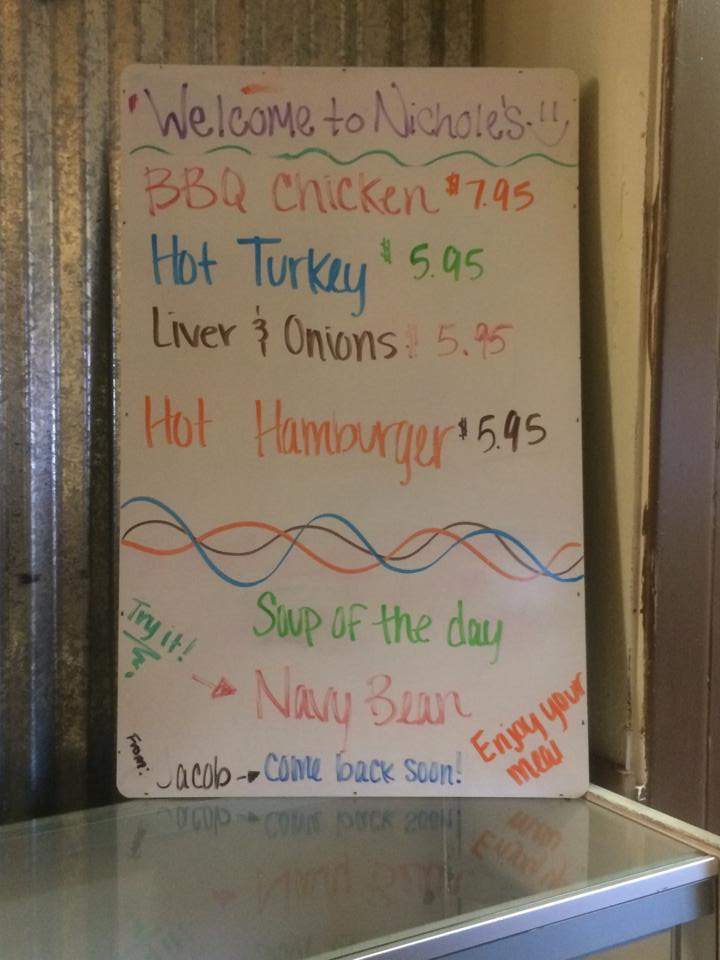 Welcome to Nichole's.
BBQ Chicken $7.95
Hot Turkey $5.95
Liver & Onions $5.95
Hot Hamburger $5.95
Try it!
Soup of the day
Navy Bean
Enjoy your
meal
From:
Jacob → come back soon!